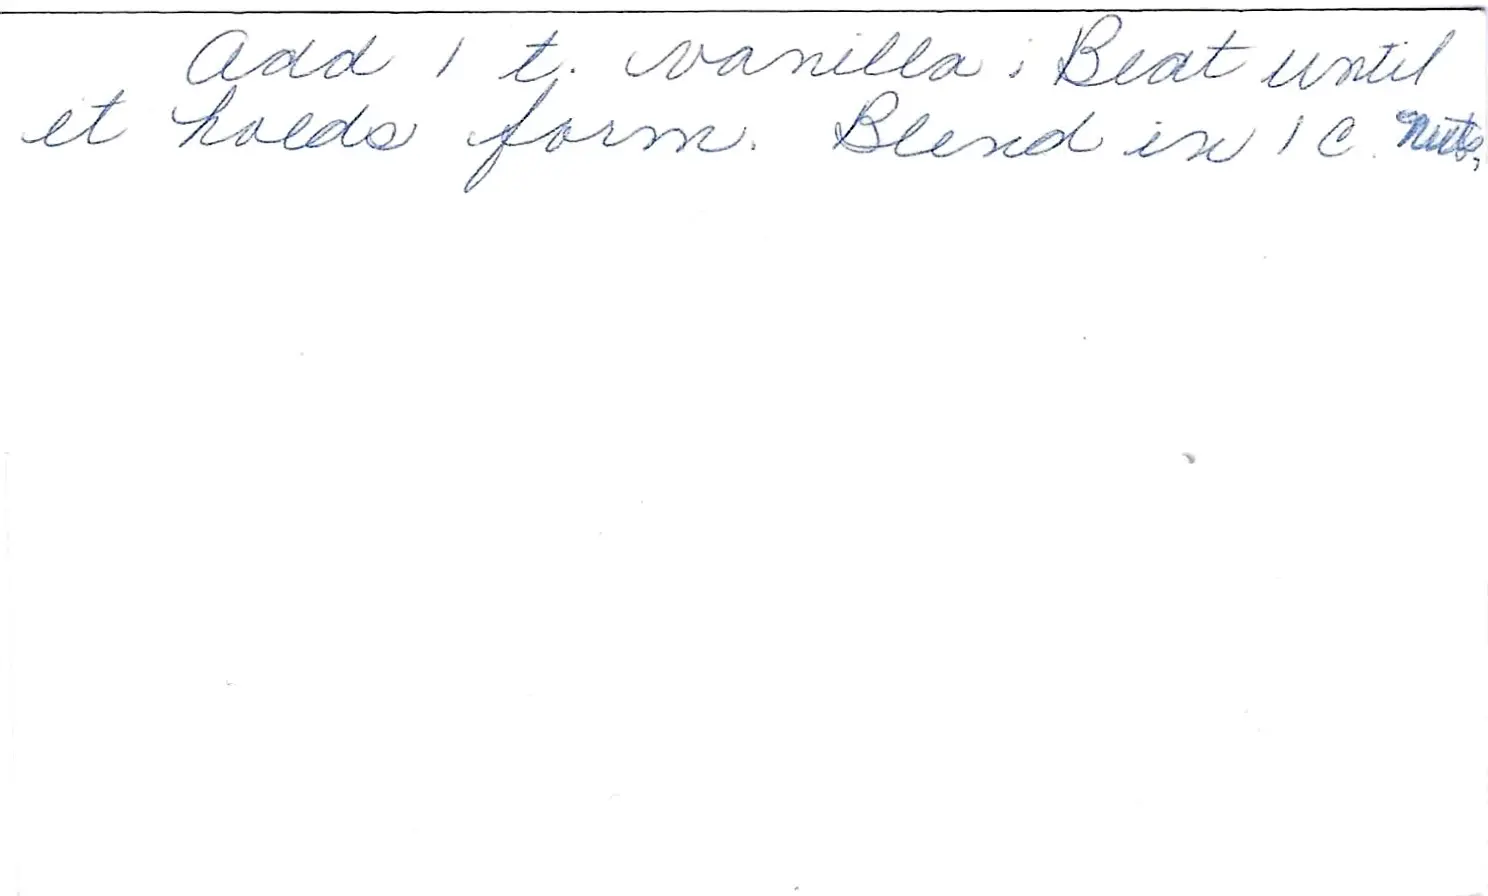 Add 1 t. vanilla; Beat until
it holds form. Blend in 1 C. Nuts,